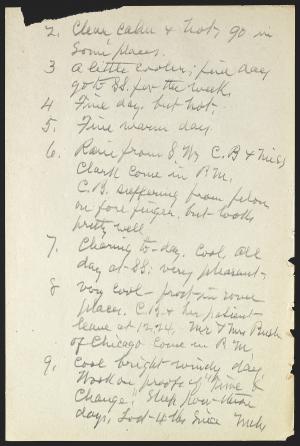 2. Clear, calm & hot, go in
some places.
3 A little cooler; fine day
go to SS. for the week.
4 Fine day, but hot.
5. Fine warm day.
6. Rain from S.W. C.B & Miss
Clark come in P.M.
C.B. suffering from felon
on fore finger, but looks
pretty well
7. Clearing to-day. Cool. All
day at SS; very pleasant.
8 very cool - frost in some
places. C.B. & her patient
leave at 12,24, Mr & Mrs Bush
of Chicago come in P.M.
9. Cool bright windy day,
Work on proofs of "Time &
Change." Sleep poor these
days, Lost 4 lbs since